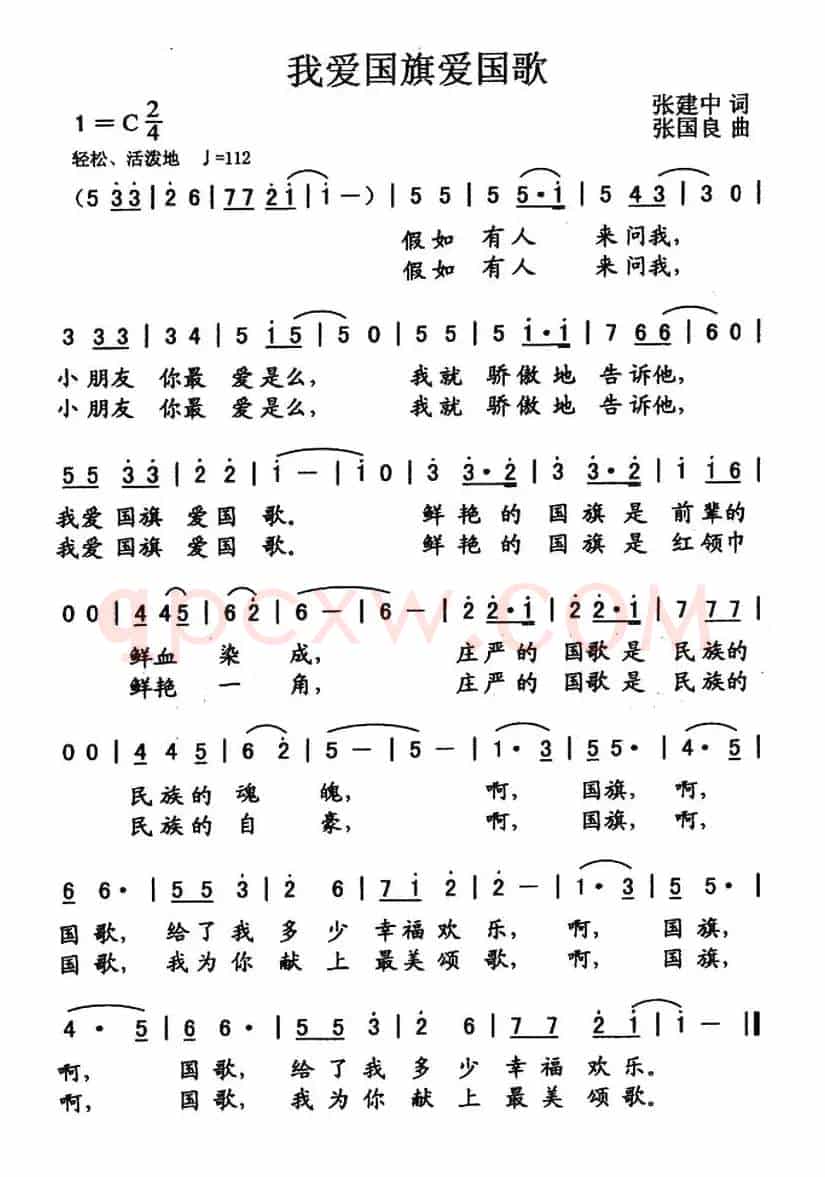 我爱国旗爱国歌
1=C 2/4
张建中 词
张国良 曲
轻松、活泼地 ♩=112
(5 3̇3̇ | 2̇ 6 | 77 2̇1̇ | 1̇ —) | 5 5 | 5 5·1̇ | 5 43 | 3 0 |
假如 有人 来问我,
假如 有人 来问我,
3 33 | 3 4 | 5 1̇5 | 5 0 | 5 5 | 5 1̇·1̇ | 7 66 | 6 0 |
小朋友 你最 爱是么, 我就 骄傲地 告诉他,
小朋友 你最 爱是么, 我就 骄傲地 告诉他,
55 3̇3̇ | 2̇ 2̇ | 1̇ — | 1̇ 0 | 3̇ 3̇·2̇ | 3̇ 3̇·2̇ | 1̇ 1̇6 |
我爱国旗 爱国 歌。 鲜艳的 国旗是 前辈的
我爱国旗 爱国 歌。 鲜艳的 国旗是 红领巾
0 0 | 4 45 | 6 2̇ | 6 — | 6 — | 2̇ 2̇·1̇ | 2̇ 2̇·1̇ | 7 77 |
qpcxw.com
鲜血 染 成, 庄严的 国歌是 民族的
鲜艳 一 角, 庄严的 国歌是 民族的
0 0 | 4 4 5 | 6 2̇ | 5 — | 5 — | 1̇· 3̇ | 5 5· | 4̇· 5 |
民族的 魂 魄, 啊, 国旗, 啊,
民族的 自 豪, 啊, 国旗, 啊,
6 6· | 55 3̇ | 2̇ 6 | 71̇ 2̇ | 2̇ — | 1̇· 3̇ | 5 5· |
国歌, 给了我 多少 幸福欢 乐, 啊, 国旗,
国歌, 我为你 献上 最美颂 歌, 啊, 国旗,
4 · 5 | 6 6· | 55 3̇ | 2̇ 6 | 77 2̇1̇ | 1̇ — ‖
啊, 国歌, 给了我 多少 幸福 欢乐。
啊, 国歌, 我为你 献上 最美 颂歌。